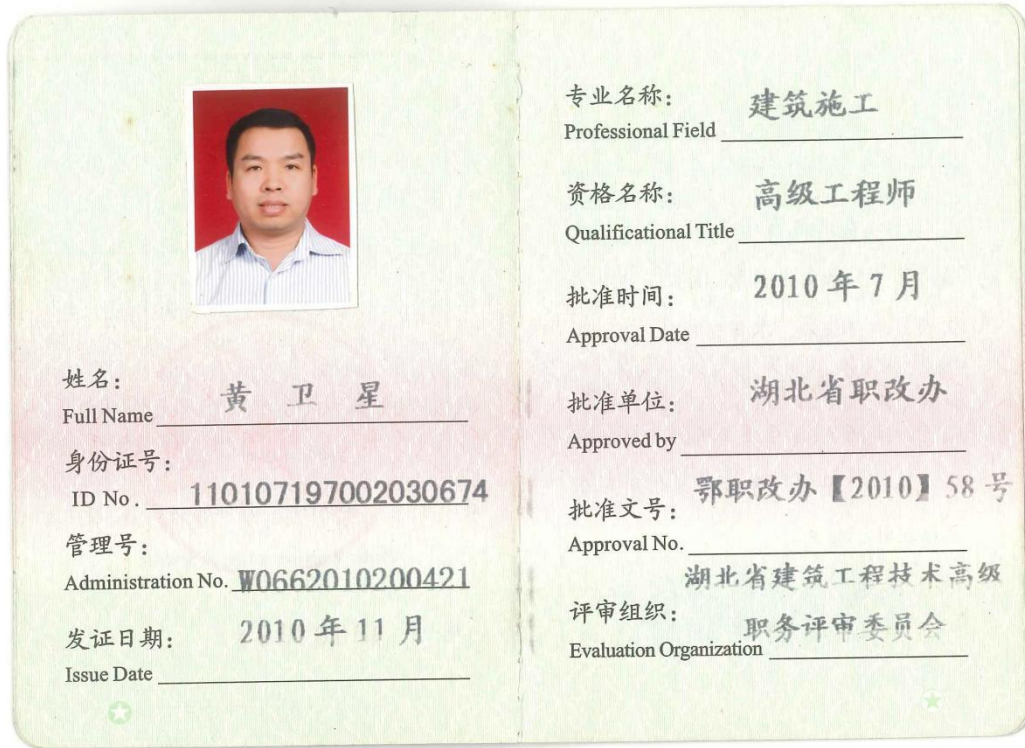 姓名： 黄卫星
Full Name
身份证号：
ID No. 110107197002030674
管理号：
Administration No. W0662010200421
发证日期： 2010年11月
Issue Date
专业名称： 建筑施工
Professional Field
资格名称： 高级工程师
Qualificational Title
批准时间： 2010年7月
Approval Date
批准单位： 湖北省职改办
Approved by
批准文号： 鄂职改办【2010】58号
Approval No.
湖北省建筑工程技术高级
评审组织： 职务评审委员会
Evaluation Organization